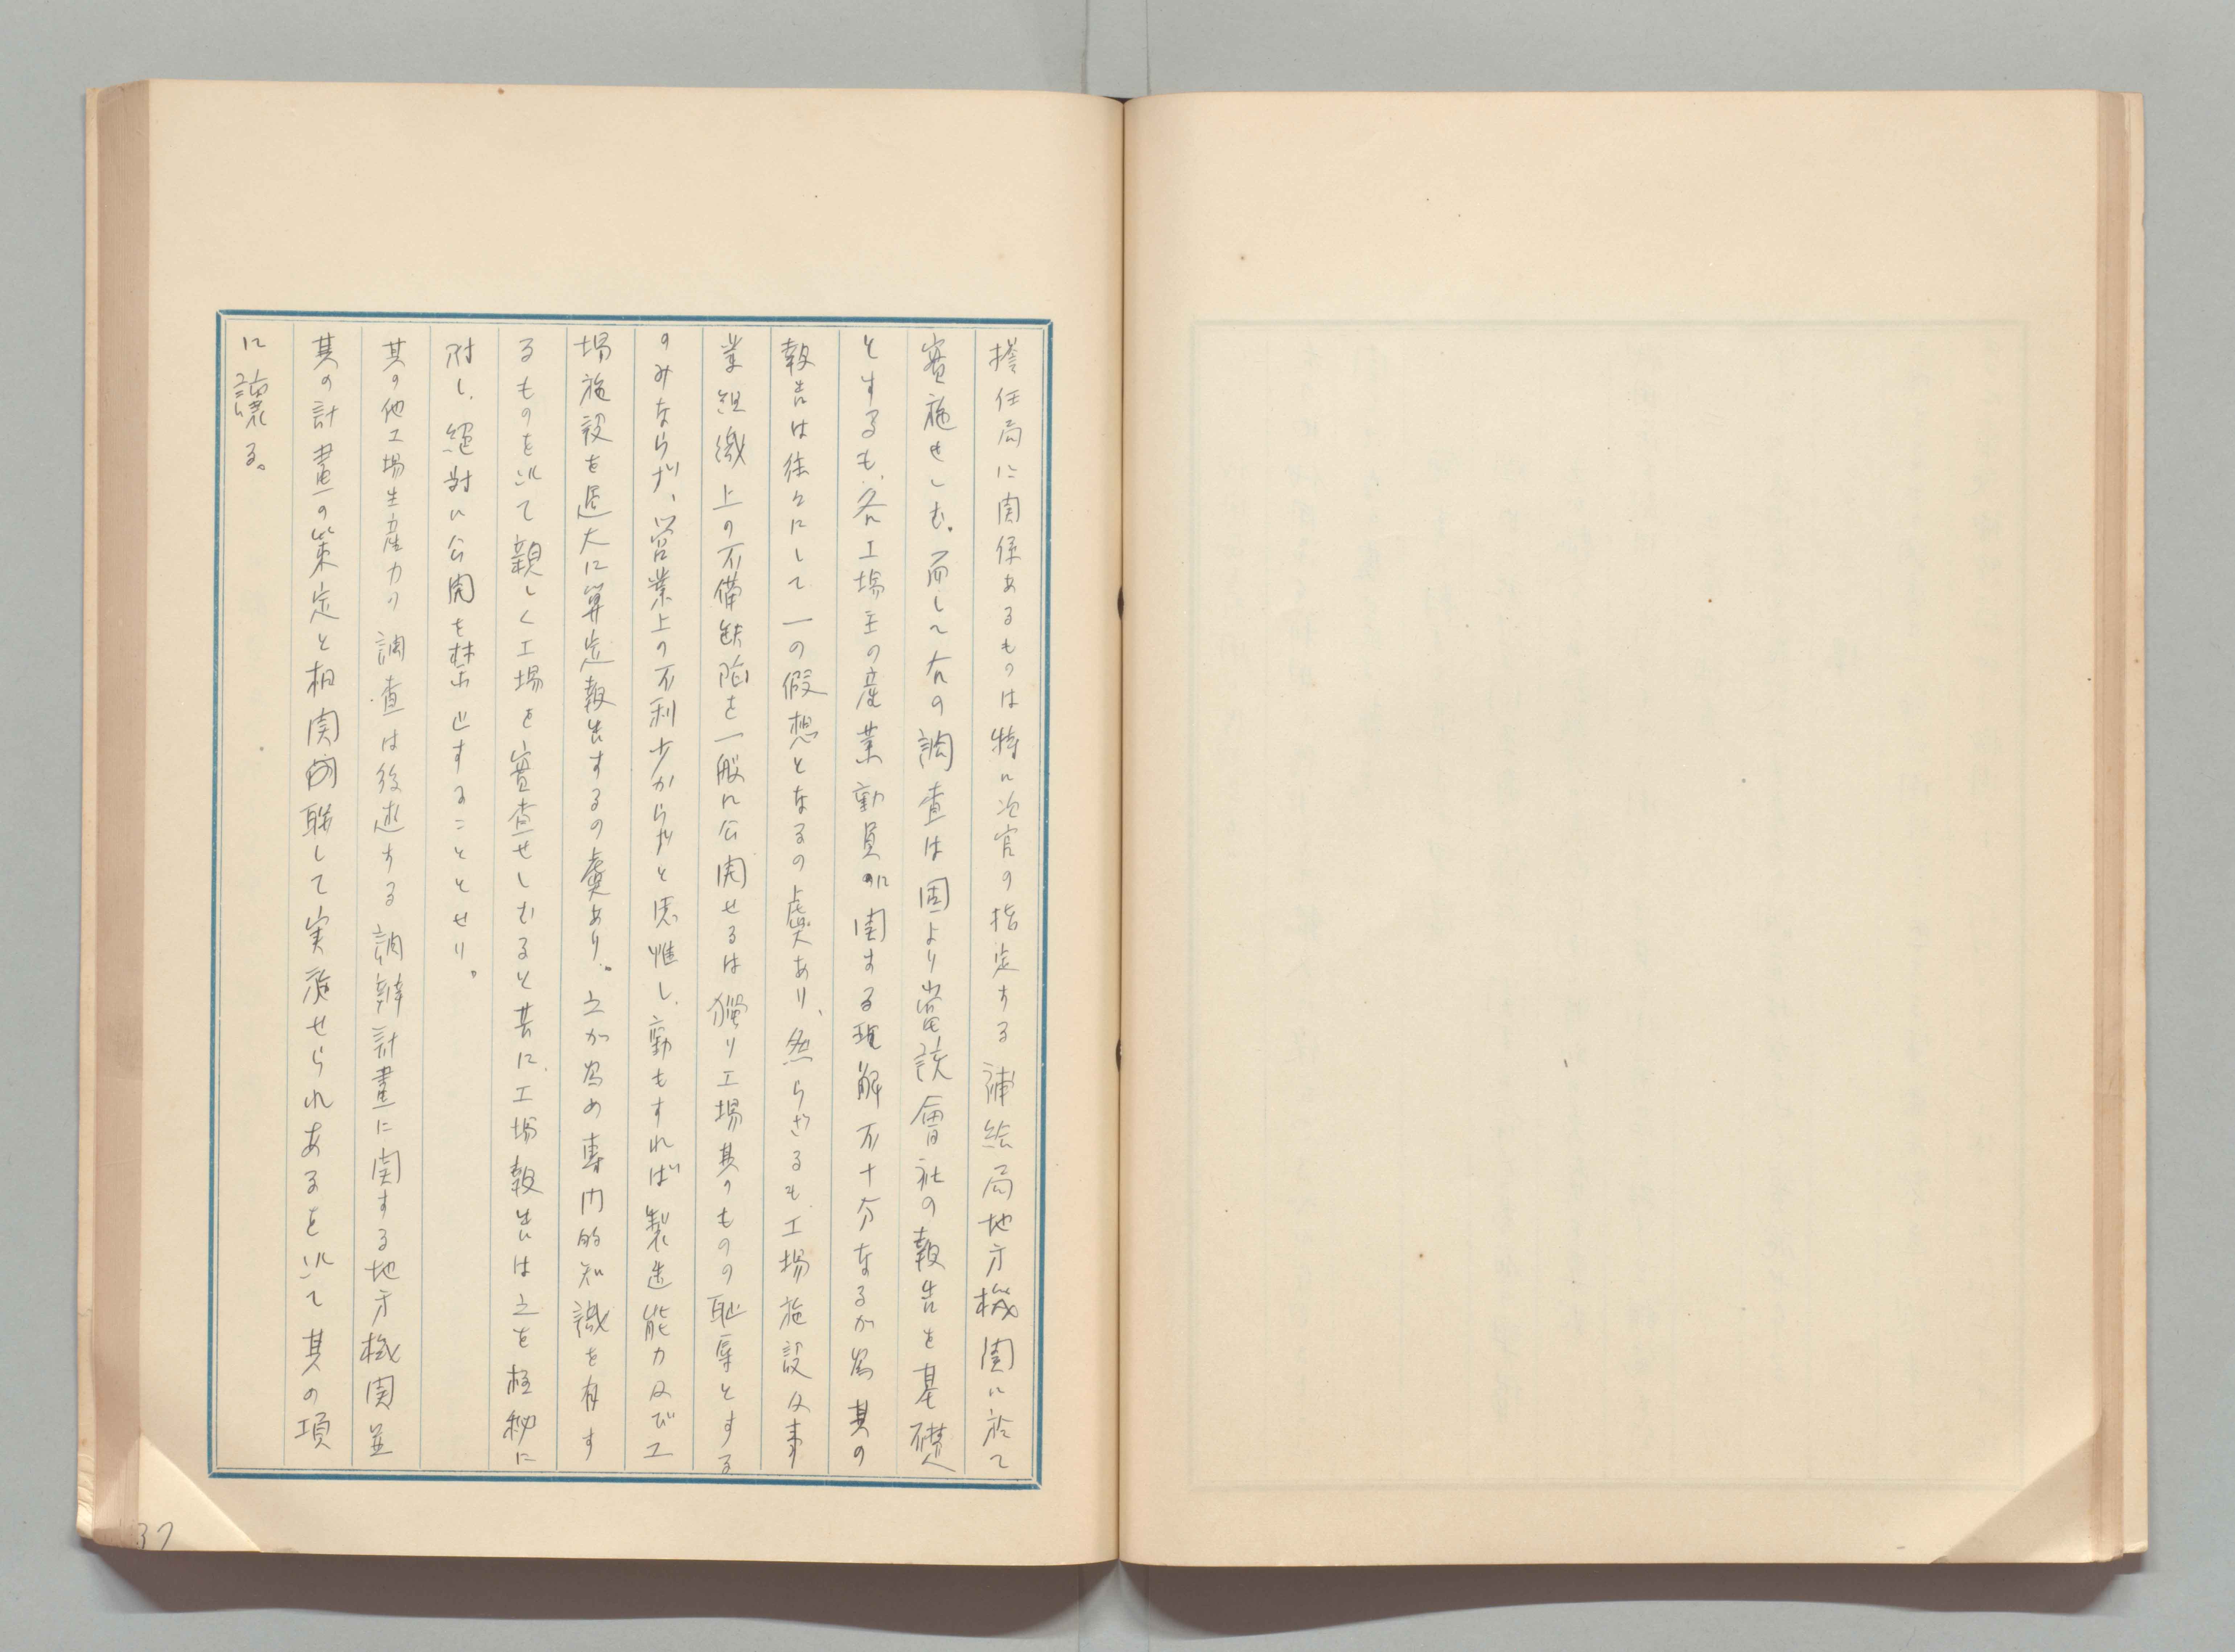 擔任局に関係あるものは特に次官の指定する補給局地方機関に於て
實施せしむ。而して右の調査は固より當該會社の報告を基礎
とするも、各工場主の産業動員に関する理解不十分なるが為其の
報告は往々にして一の假想となるの虞あり、然らざるも工場施設及事
業組織上の不備缺陥を一般に公開せるは獨り工場其のものの恥辱とする
のみならず、営業上の不利少からずと思惟し、動もすれば製造能力及び工
場施設を過大に算定報告するの虞あり。之が為め専門的知識を有す
るものを派て親しく工場を審査せしむると共に、工場報告は之を極秘に
附し、絶対に公開を禁止することとせり。
其の他工場生産力の調査は後述する調辨計畫に関する地方機関並
其の計畫の策定と相関聯して実施せられあるを以て其の項
に譲る。
37